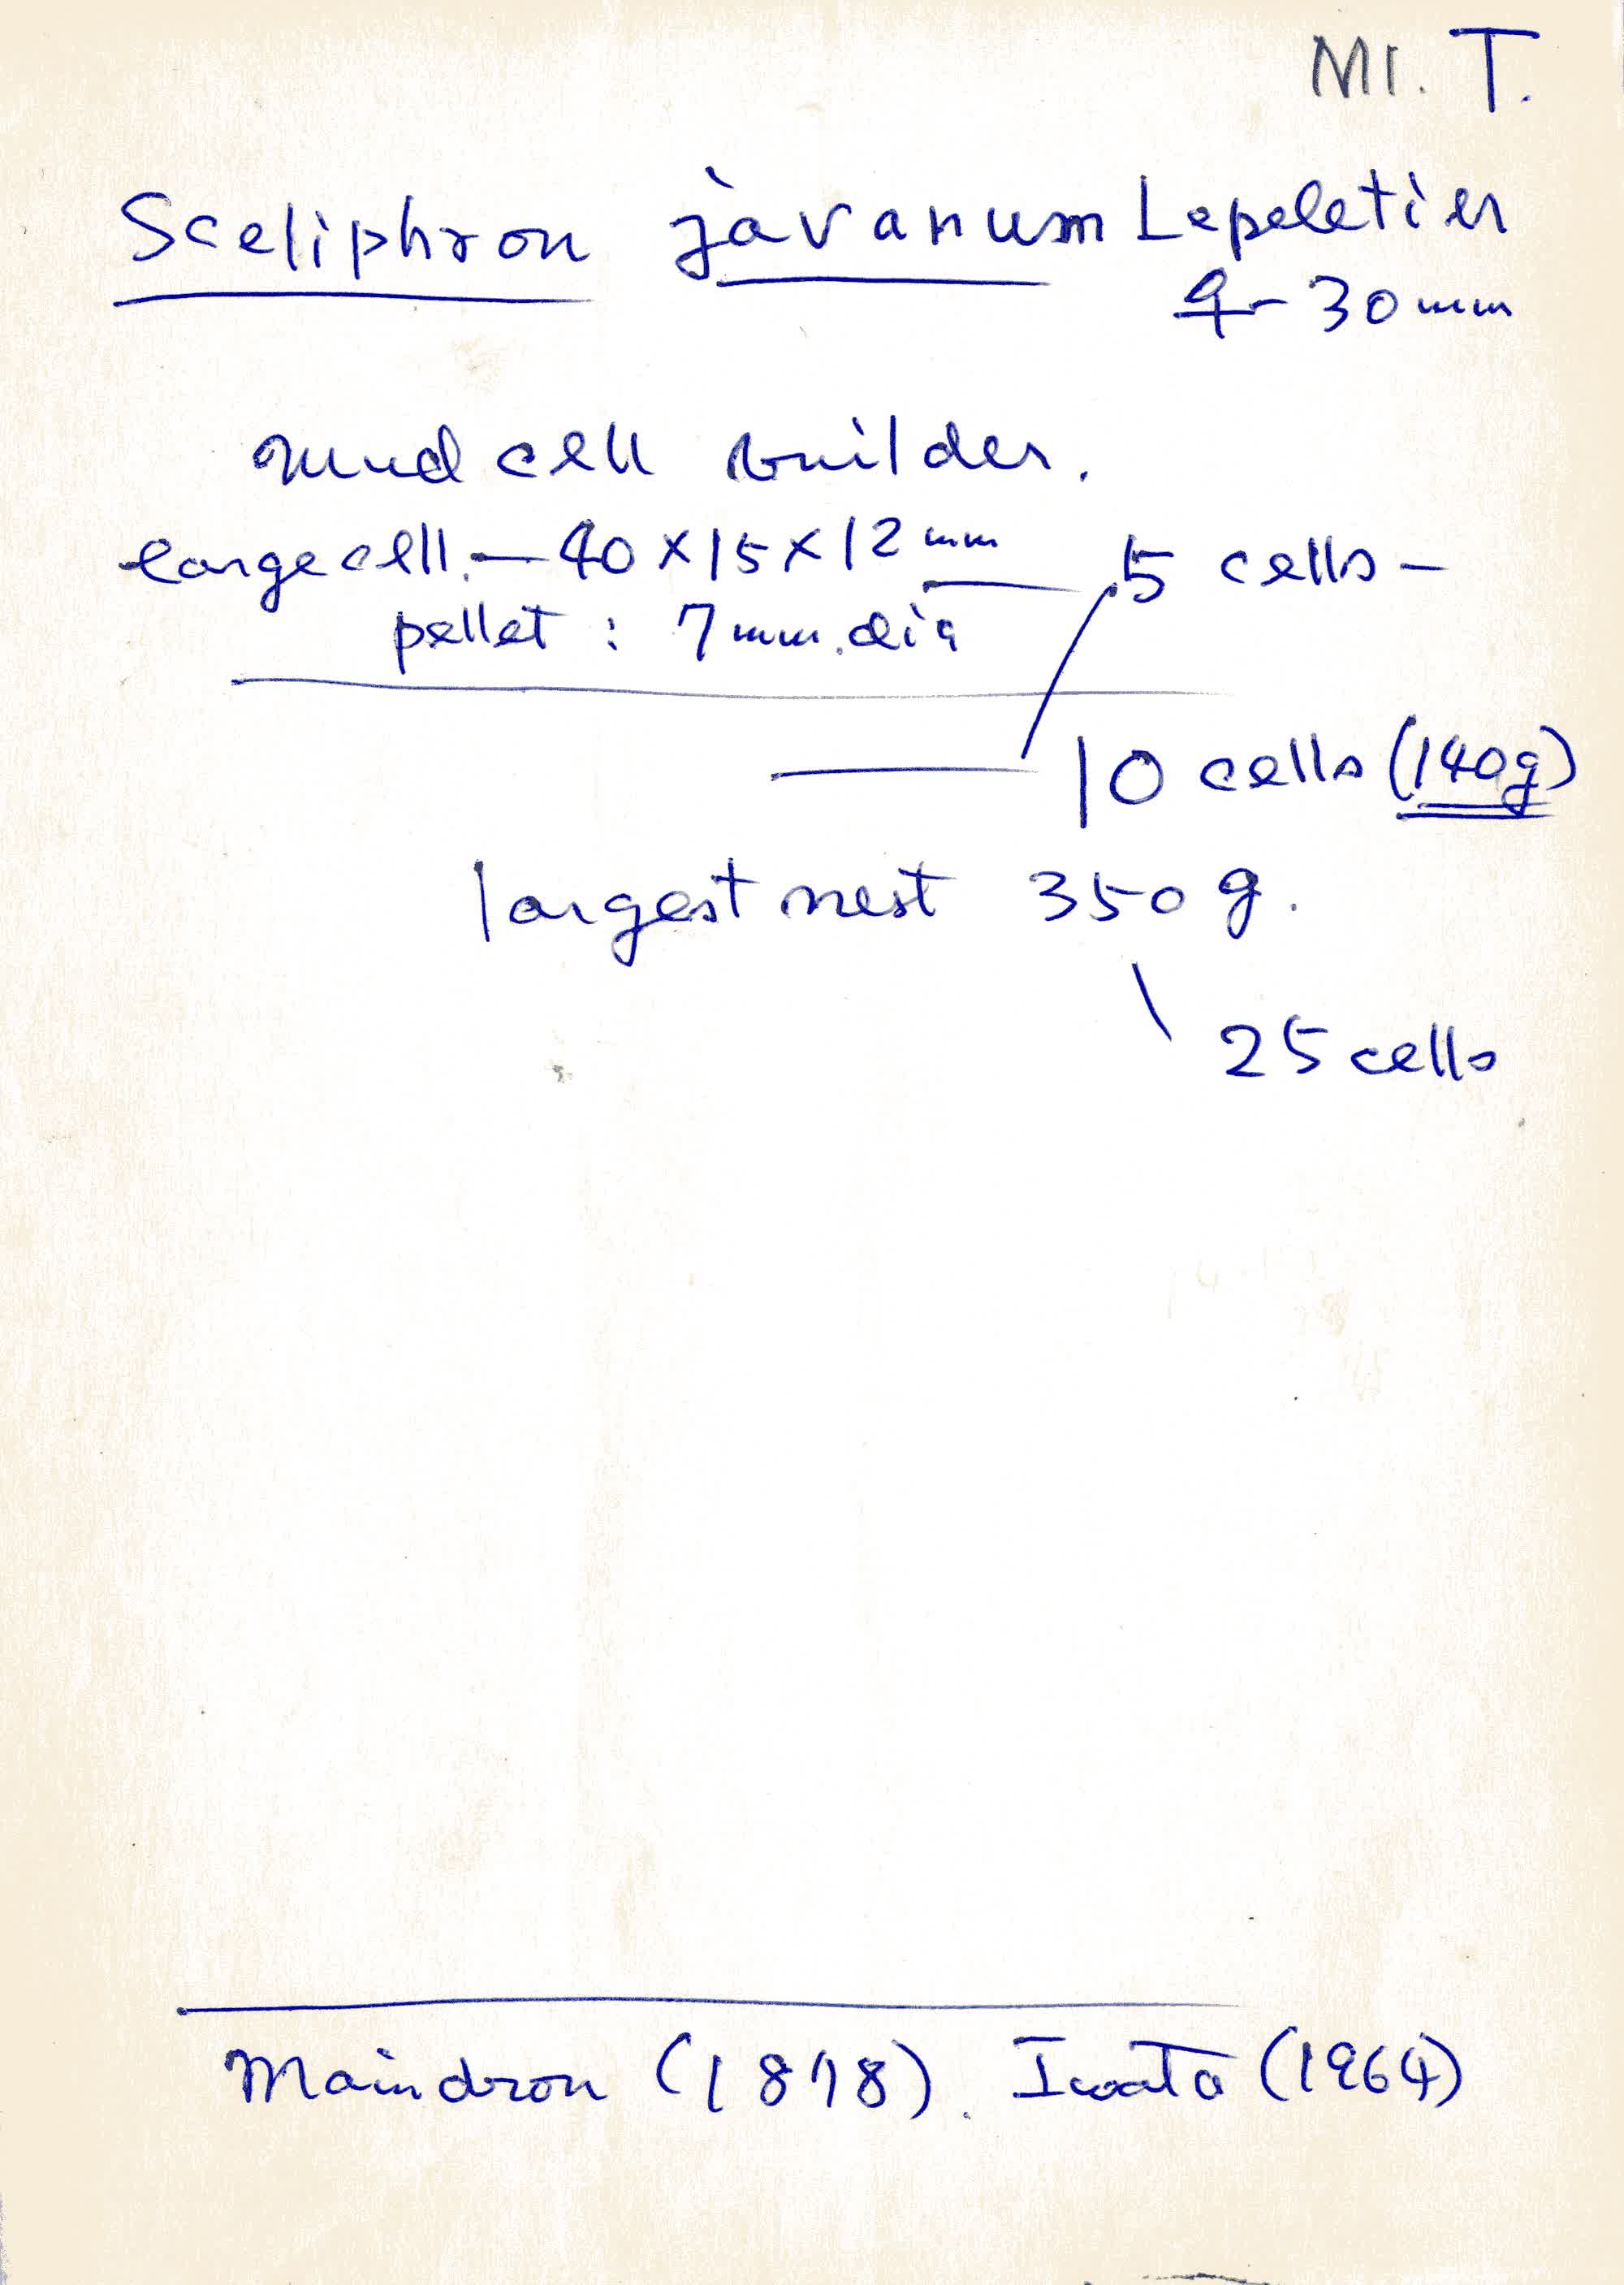 MI. T.
Sceliphron javanum Lepeletier
♀ - 30 mm
mud cell builder.
large cell. — 40 × 15 × 12 mm 5 cells -
pellet : 7 mm. dia
10 cells (140g)
largest nest 350 g.
25 cells
Maindron (1878). Iwata (1964)